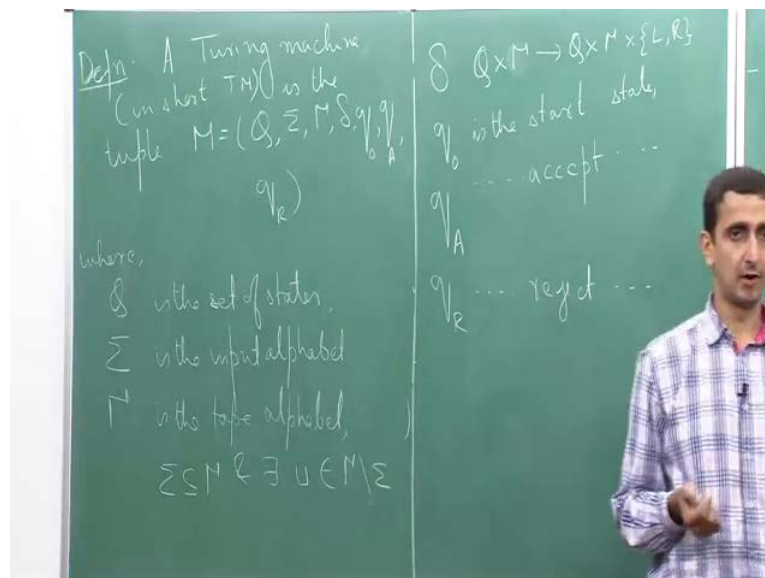 Defn: A Turing machine
(in short TM) is the
tuple M = (Q, Σ, Γ, δ, q₀, q_A,
q_R)
where,
Q is the set of states,
Σ is the input alphabet
Γ is the tape alphabet,
Σ ⊆ Γ & ∃ ⊔ ∈ Γ \ Σ
δ Q × Γ → Q × Γ × {L, R}
q₀ is the start state,
q_A ..... accept ....
q_R .... reject ...